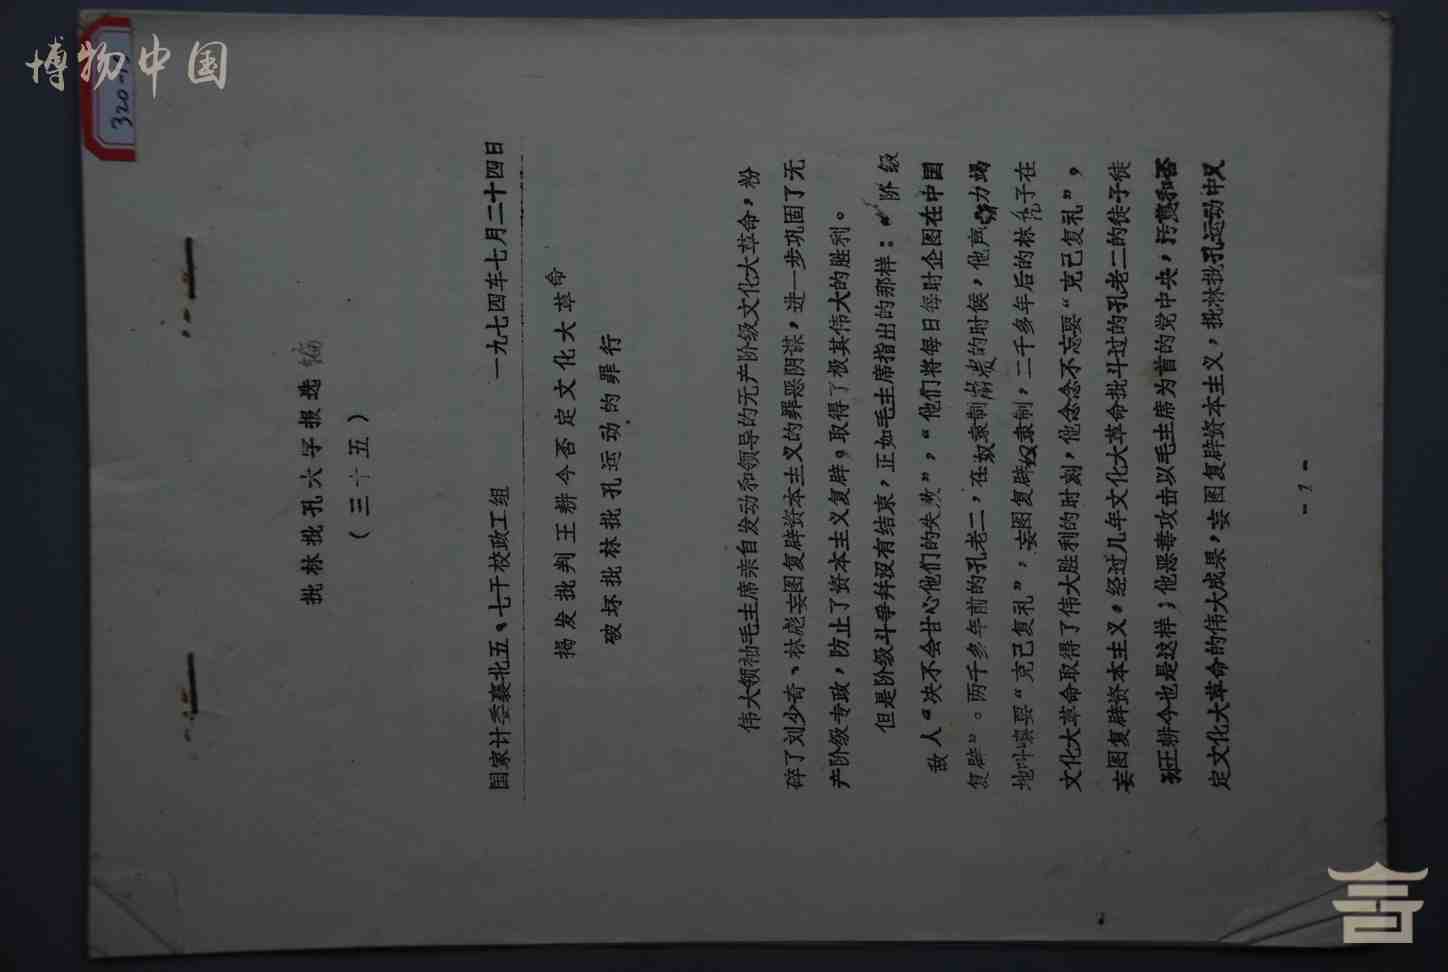 博物中国
320-19
批林批孔大字报选编
（三十五）
国家计委襄北五、七干校政工组 一九七四年七月二十四日
揭发批判王耕今否定文化大革命
破坏批林批孔运动的罪行
伟大领袖毛主席亲自发动和领导的无产阶级文化大革命，粉
碎了刘少奇、林彪妄图复辟资本主义的罪恶阴谋，进一步巩固了无
产阶级专政，防止了资本主义复辟，取得了极其伟大的胜利。
但是阶级斗争并没有结束，正如毛主席指出的那样：“阶级
敌人“决不会甘心他们的失败”，“他们将每日每时企图在中国
复辟”。两千多年前的孔老二，在奴隶制崩溃的时候，他声嘶力竭
地叫嚷要“克己复礼”，妄图复辟奴隶制，二千多年后的林秃子在
文化大革命取得了伟大胜利的时刻，他念念不忘要“克己复礼”，
妄图复辟资本主义。经过几年文化大革命批斗过的孔老二的徒子徒
孙王耕今也是这样；他恶毒攻击以毛主席为首的党中央，污蔑和否
定文化大革命的伟大成果，妄图复辟资本主义，批林批孔运动中又
- 1 -